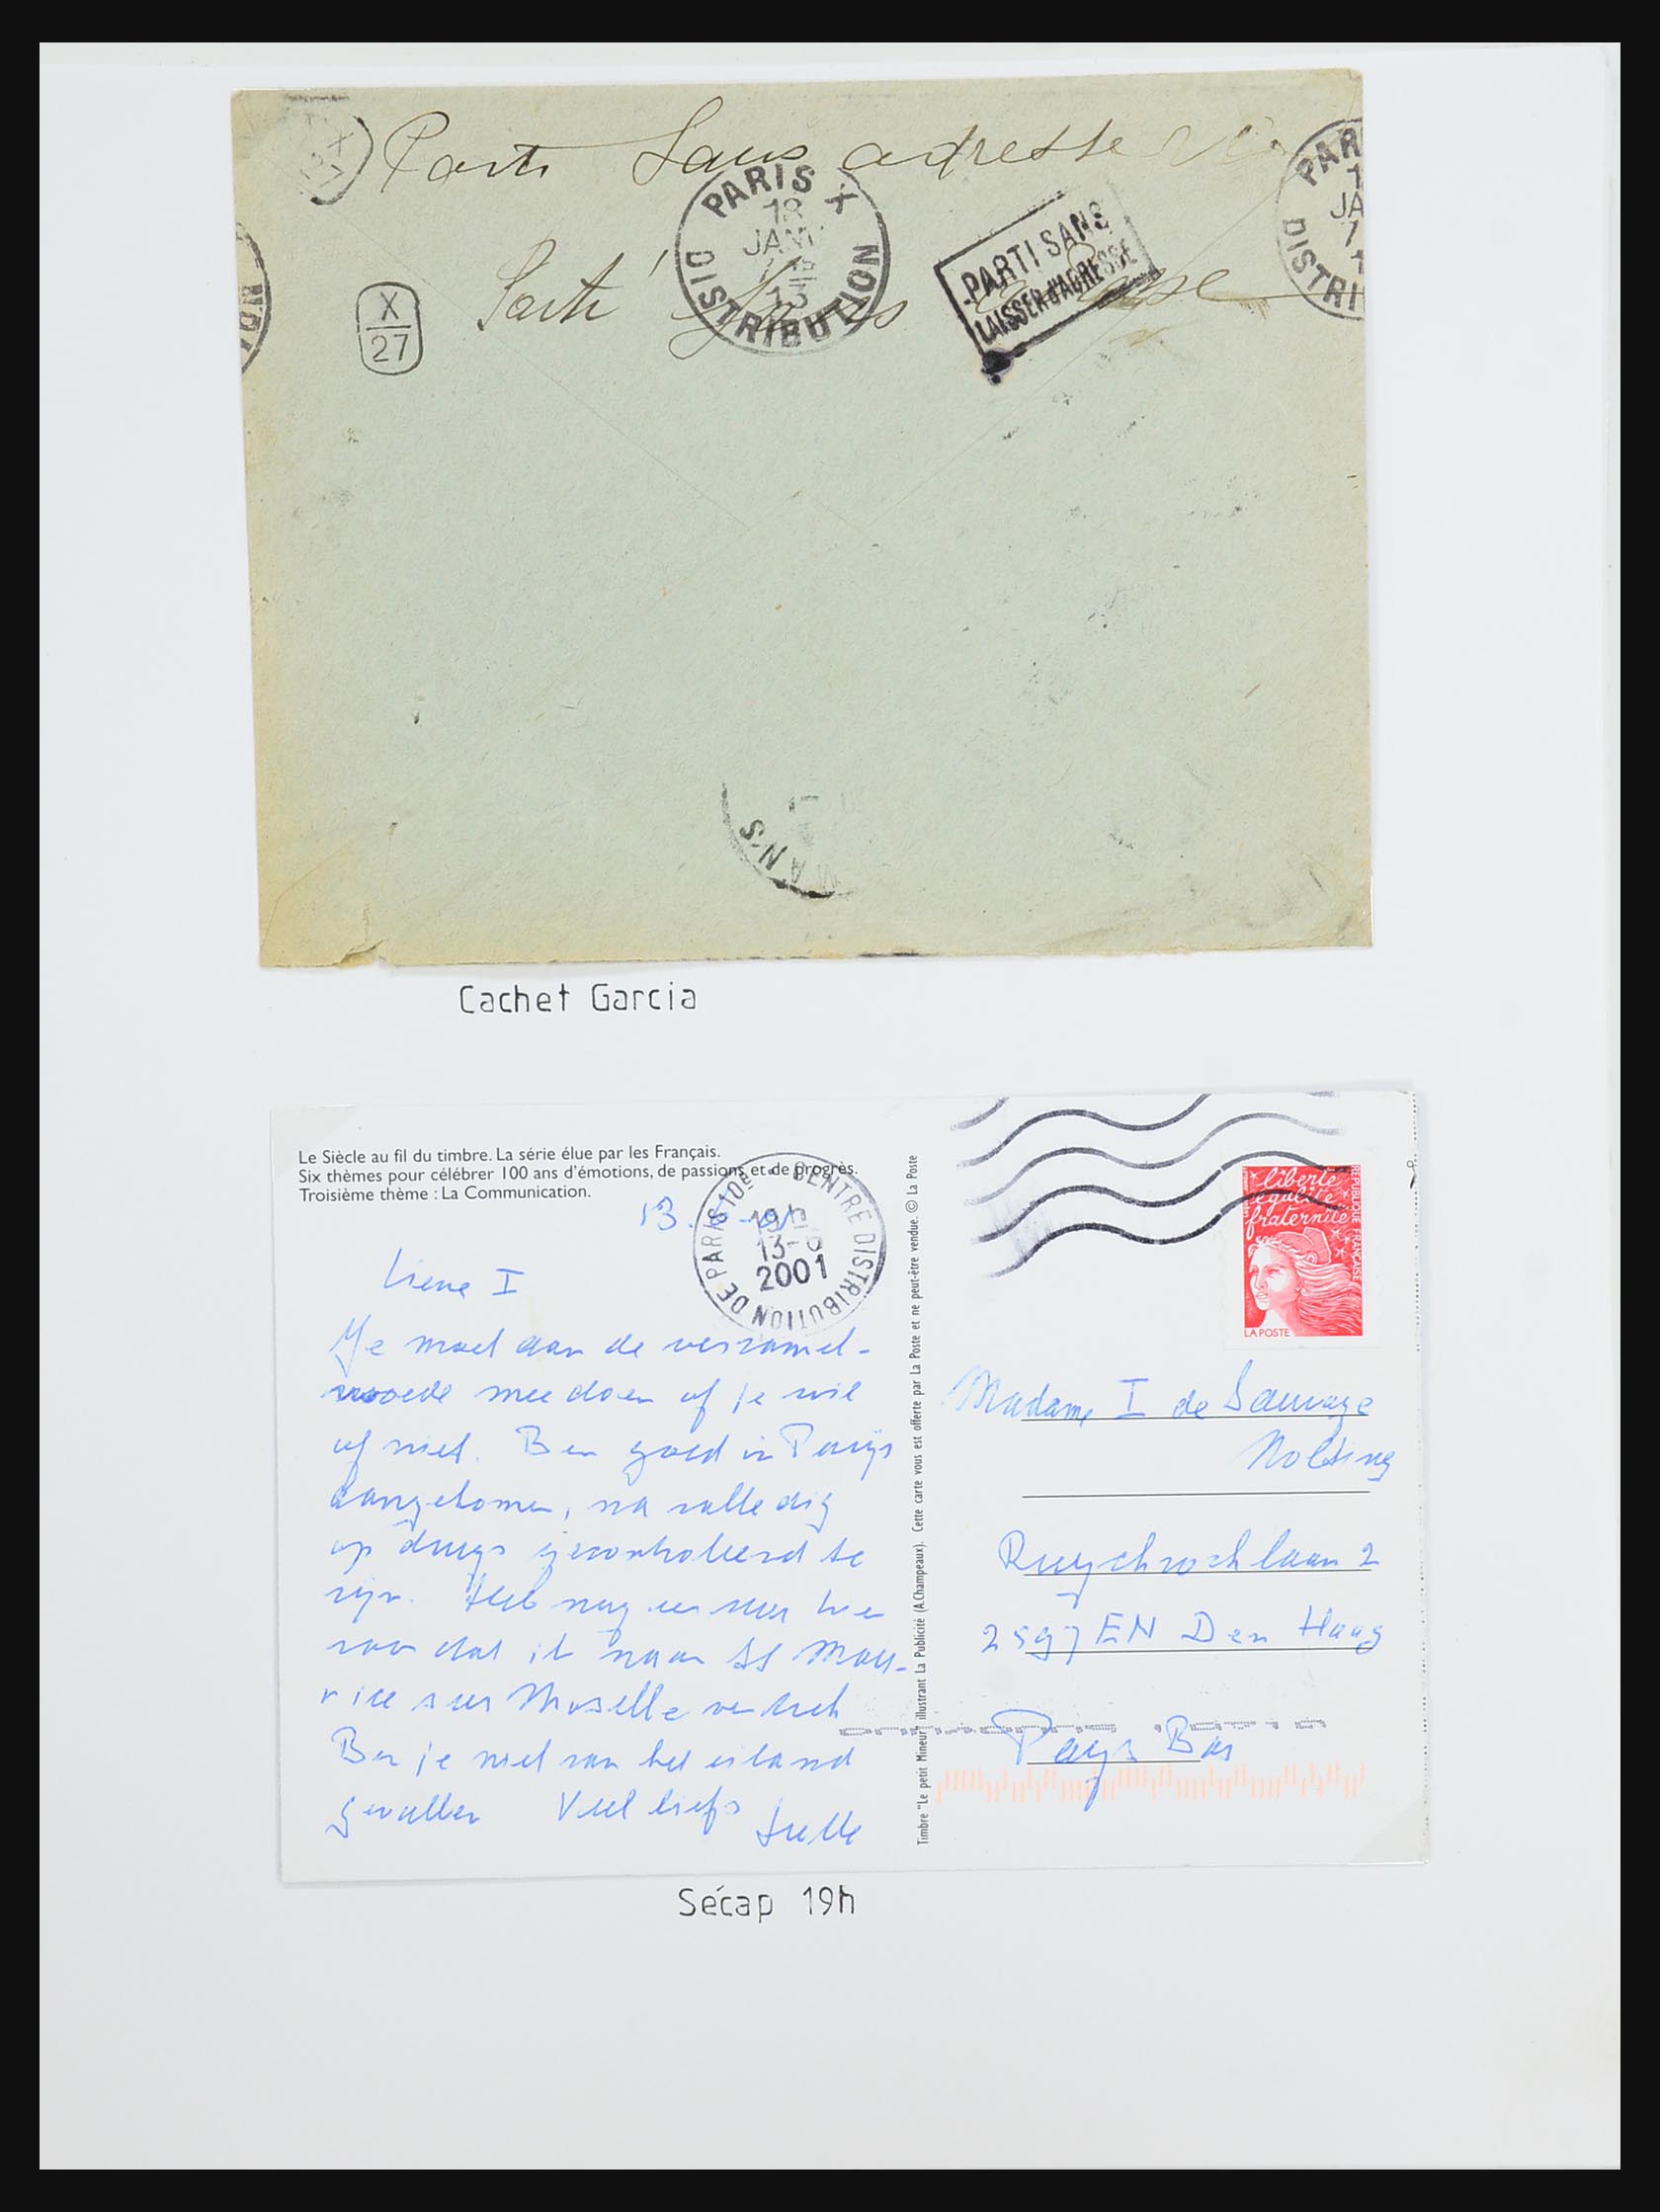 Parti Sans adresse
PARIS X
18
JANV
13
DISTRIBUTION
PARTI SANS
LAISSER D'ADRESSE
PAR
JA
DISTRI
Parti Sans
X
27
MANS
Cachet Garcia
Le Siècle au fil du timbre. La série élue par les Français.
Six thèmes pour célébrer 100 ans d'émotions, de passions et de progrès.
Troisième thème : La Communication.
CENTRE DISTRIBUTION DE PARIS 10e
19h
13-6
2001
liberté
égalité
fraternité
RÉPUBLIQUE FRANÇAISE
LA POSTE
Lieve I
Je moet aan de verzamel-
woede mee doen of je wil
of niet. Ben goed in Parijs
aangekomen, na volledig
op drugs gecontroleerd te
zijn. Heb nog een uur
voor dat ik naar St Mau-
rice sur Moselle vertrek
Ben je niet van het eiland
gevallen Veel liefs
Timbre "Le petit Mineur" illustrant La Publicité (A.Champeaux). Cette carte vous est offerte par La Poste et ne peut-être vendue. © La Poste
Madame I de Sauvage
Nolting
Ruychrocklaan 2
2597 EN Den Haag
Pays Bas
Sécap 19h